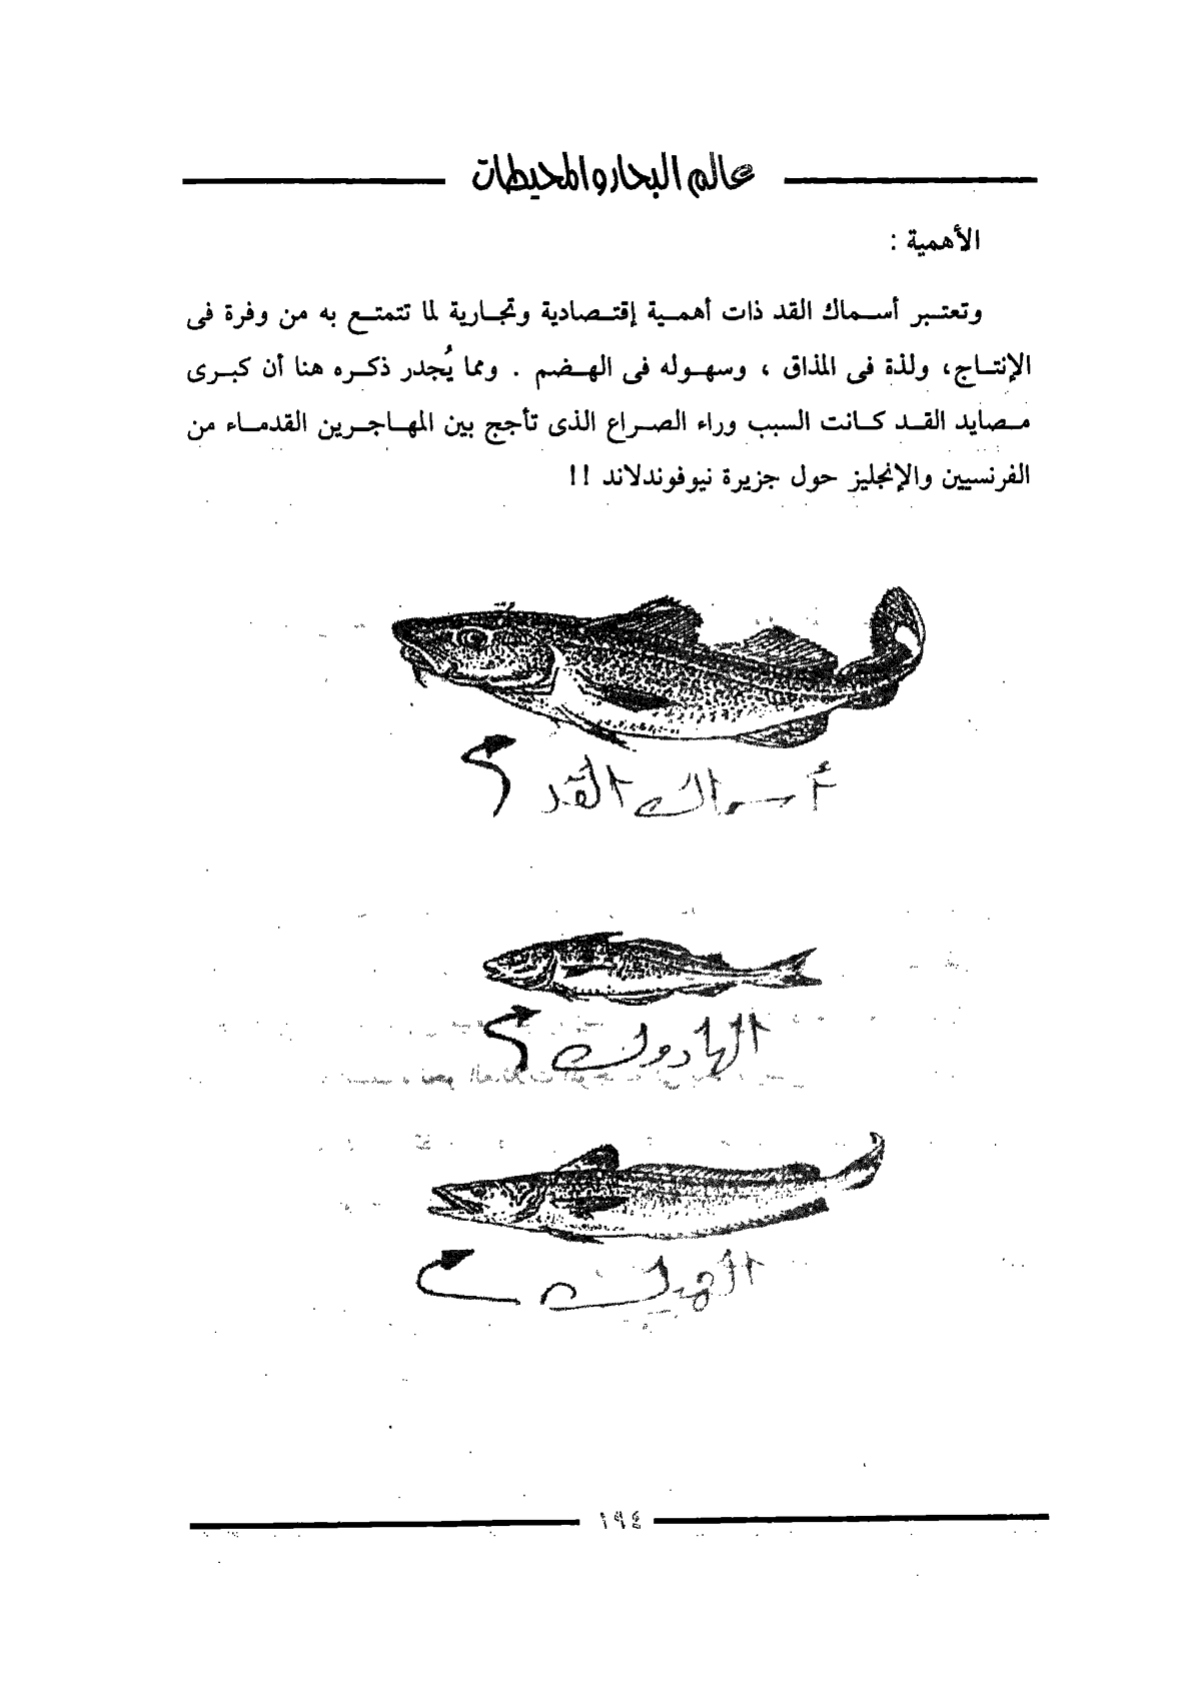 عالم البحار والمحيطات
الأهمية :
وتعتبر أسماك القد ذات أهمية إقتصادية وتجارية لما تتمتع به من وفرة فى
الإنتاج، ولذة فى المذاق ، وسهوله فى الهضم . ومما يُجدر ذكره هنا أن كبرى
مصايد القد كانت السبب وراء الصراع الذى تأجج بين المهاجرين القدماء من
الفرنسيين والإنجليز حول جزيرة نيوفوندلاند !!
أسماك القد
الهادوك
الهيك
١٩٤